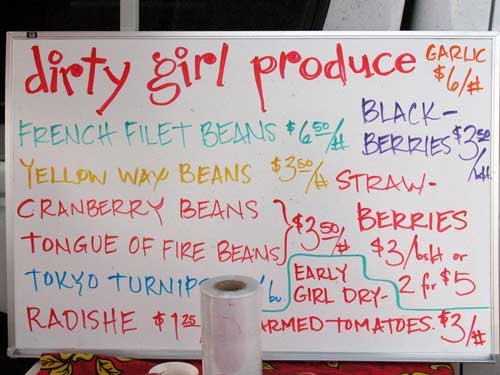 dirty girl produce
GARLIC
$6/#
FRENCH FILET BEANS $6.50/#
BLACK-
BERRIES $3.50
/bskt.
YELLOW WAX BEANS $3.50/#
STRAW-
BERRIES
$3/bskt or
2 for $5
CRANBERRY BEANS
TONGUE OF FIRE BEANS
$3.50/#
TOKYO TURNIPS
/bu.
RADISHE $1.25/
EARLY
GIRL DRY-
ARMED TOMATOES. $3/#